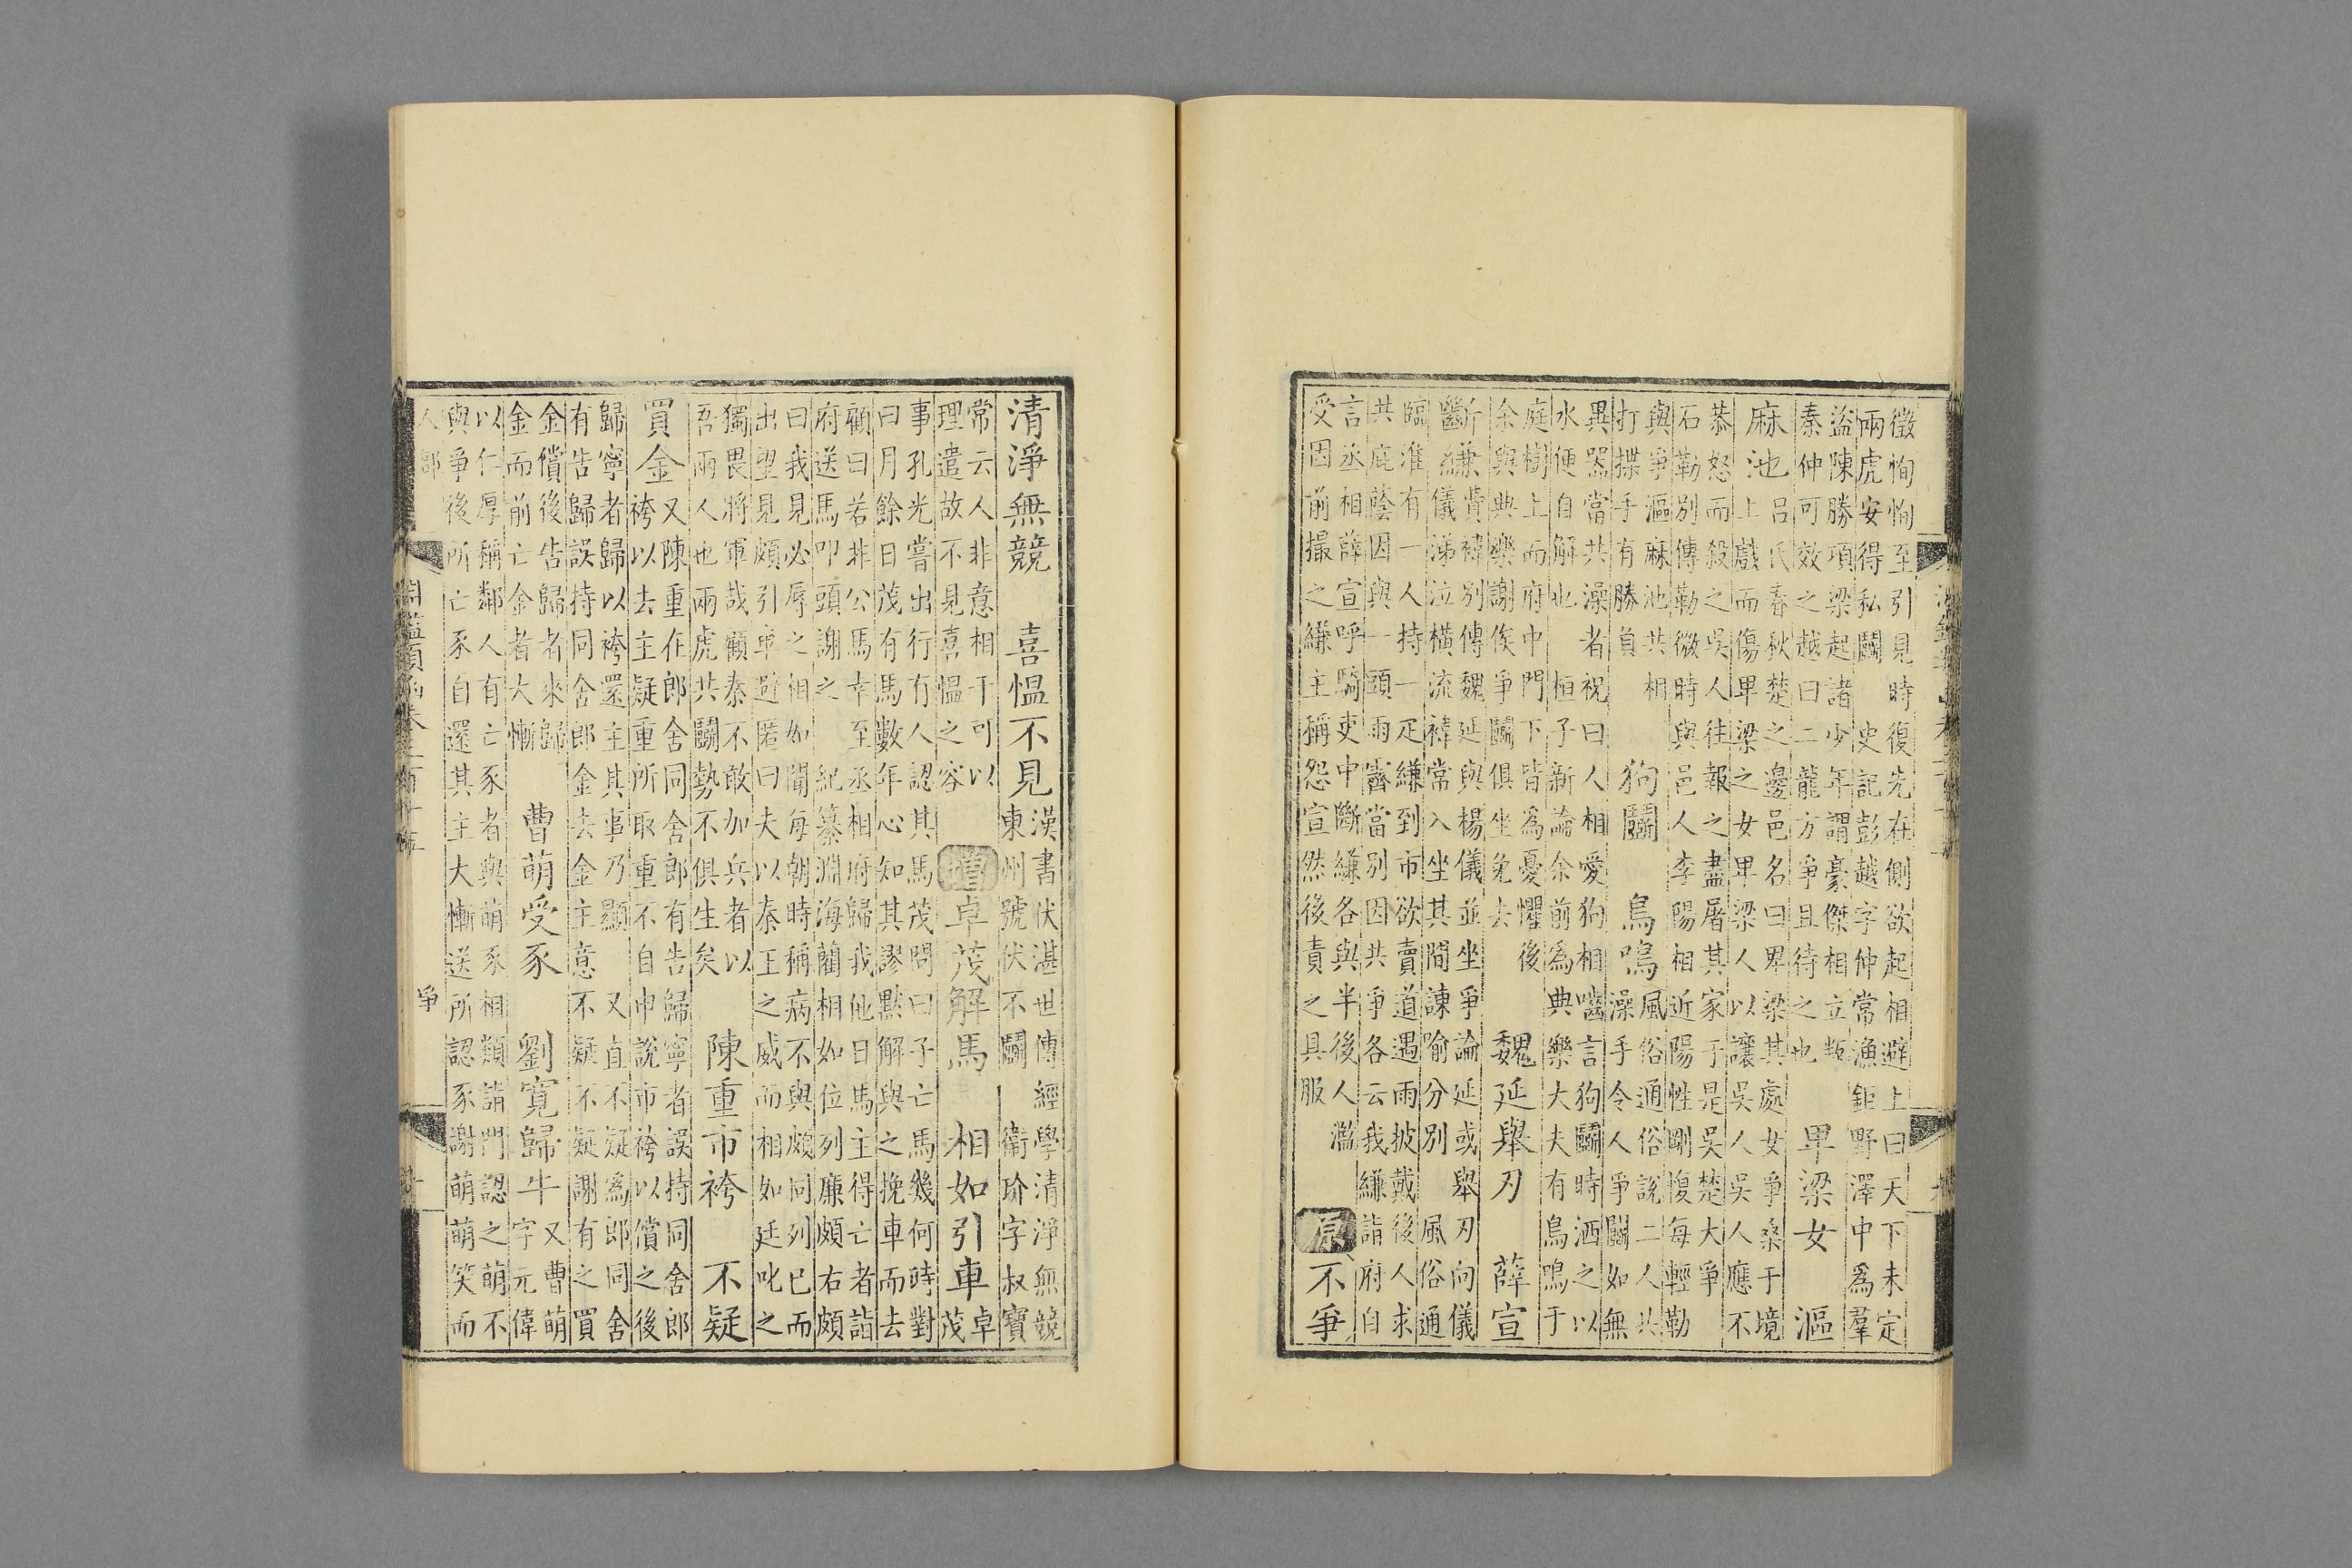 徵恂恂至引見時復先在側欲起相避上曰天下未定
兩虎安得私鬭 史記彭越字仲常漁鉅野澤中爲羣
盜陳勝項梁起諸少年謂豪傑相立叛
秦仲可效之越曰二龍方爭且待之也
卑梁女 漚
麻池
呂氏春秋楚之邊邑名曰卑梁其處女爭桑于境
上戲而傷卑梁之女卑梁人以讓吳人吳人應不
恭怒而殺之吳人往報之盡屠其家于是吳楚大爭
石勒別傳勒微時與邑人李陽相近陽性剛愎每輕勒
與爭漚麻池共相
打撲手有勝負
狗鬭 烏鳴
風俗通俗說二人共
澡手令人爭鬭如無
異器當共澡者祝曰人相愛狗相嚙言狗鬭時洒之以
水便自解也 桓子新論余前爲典樂大夫有烏鳴于
庭樹上而府中門下皆爲憂懼後
余與典樂謝俟爭鬭俱坐免去
魏延舉刃 薛宣
斷縑
費禕別傳魏延與楊儀並坐爭論延或舉刃向儀
儀涕泣橫流禕常入坐其間諫喻分別 風俗通
臨淮有一人持一疋縑到市欲賣道遇雨披戴後人求
共庇蔭因與一頭雨霽當別因共爭各云我縑詣府自
言丞相薛宣呼騎吏中斷縑各與半後人濫
受因前撮之縑主稱怨宣然後責之具服
原 不爭
清淨無競 喜慍不見
漢書伏湛世傳經學清淨無競
東州號伏不鬭 衛玠字叔寶
常云人非意相干可以
理遣故不見喜慍之容
增 卓茂解馬 相如引車
卓
茂
事孔光嘗出行有人認其馬茂問曰子亡馬幾何時對
曰月餘日茂有馬數年心知其謬默解與之挽車而去
顧曰若非公馬幸至丞相府歸我他日馬主得亡者詣
府送馬叩頭謝之 紀纂淵海藺相如位列廉頗右頗
曰我見必辱之相如聞每朝時稱病不與頗同列已而
出望見頗引車避匿曰夫以秦王之威而相如廷叱之
獨畏將軍哉顧秦不敢加兵者以
吾兩人也兩虎共鬭勢不俱生矣
陳重市袴 不疑
買金
又陳重在郎舍同舍郎有告歸寧者誤持同舍郎
袴以去主疑重所取重不自申說市袴以償之後
歸寧者歸以袴還主其事乃顯 又直不疑爲郎同舍
有告歸誤持同舍郎金去金主意不疑不疑謝有之買
金償後告歸者來歸
金而前亡金者大慚
曹萌受豕 劉寬歸牛
又曹萌
字元偉
以仁厚稱鄰人有亡豕者與萌豕相類詣門認之萌不
與爭後所亡豕自還其主大慚送所認豕謝萌萌笑而
人部
淵鑑類函卷三百十五
爭